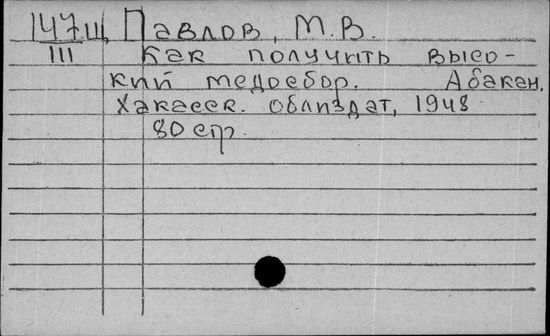 147.Щ Павлов, М.В.
III Как получить высо-
кий медосбор. Абакан,
Хакасск. облиздат, 1948
80 стр.